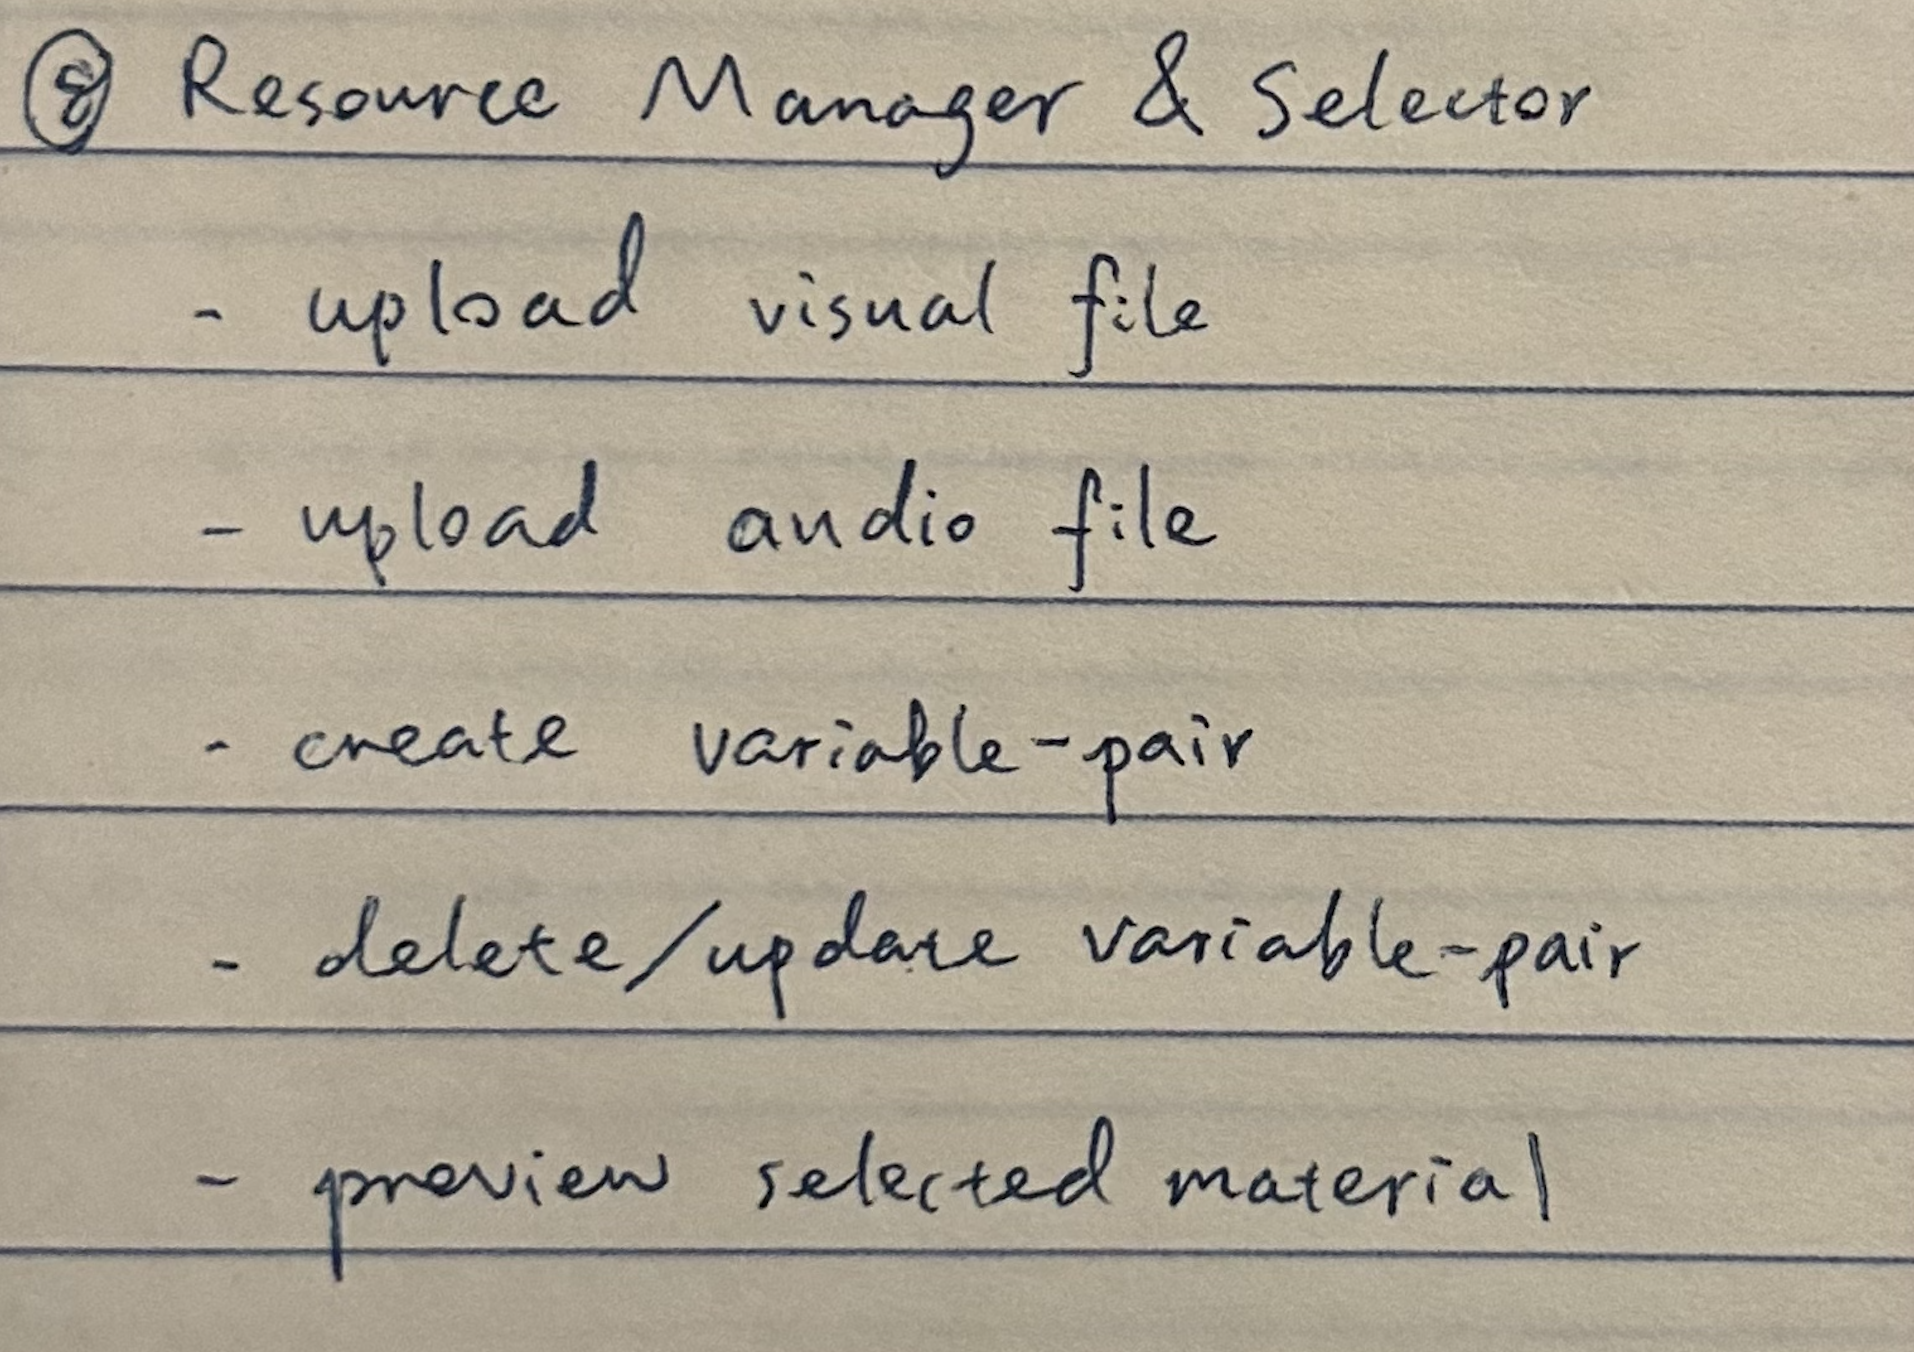 ⑧ Resource Manager & Selector
- upload visual file
- upload audio file
- create variable-pair
- delete/update variable-pair
- preview selected material